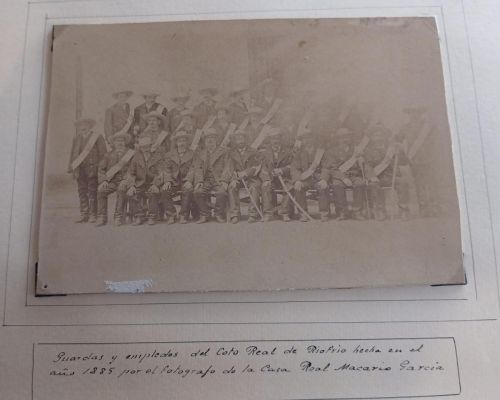 Guardas y empledos del Coto Real de Riofrio hecha en el
año 1885 por el fotografo de la Casa Real Macario Garcia